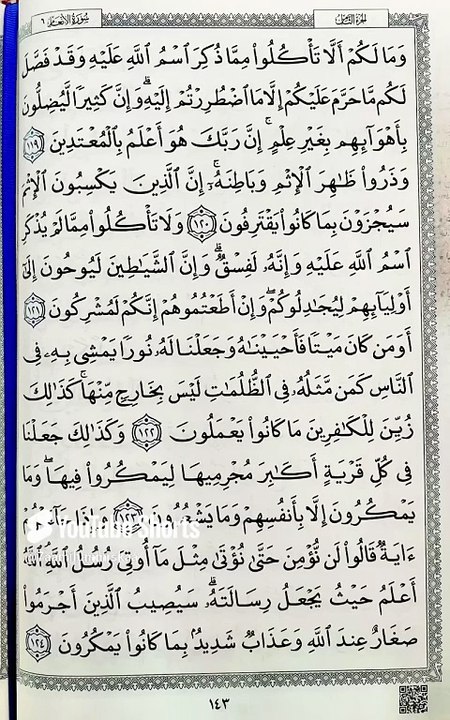 سُورَةُ الأَنْعَامِ ٦
الجُزْءُ الثَّامِنُ
وَمَا لَكُمْ أَلَّا تَأْكُلُوا۟ مِمَّا ذُكِرَ ٱسْمُ ٱللَّهِ عَلَيْهِ وَقَدْ فَصَّلَ
لَكُم مَّا حَرَّمَ عَلَيْكُمْ إِلَّا مَا ٱضْطُرِرْتُمْ إِلَيْهِ ۗ وَإِنَّ كَثِيرًا لَّيُضِلُّونَ
بِأَهْوَآئِهِم بِغَيْرِ عِلْمٍ ۗ إِنَّ رَبَّكَ هُوَ أَعْلَمُ بِٱلْمُعْتَدِينَ ١١٩
وَذَرُوا۟ ظَـٰهِرَ ٱلْإِثْمِ وَبَاطِنَهُۥٓ ۚ إِنَّ ٱلَّذِينَ يَكْسِبُونَ ٱلْإِثْمَ
سَيُجْزَوْنَ بِمَا كَانُوا۟ يَقْتَرِفُونَ ١٢٠ وَلَا تَأْكُلُوا۟ مِمَّا لَمْ يُذْكَرِ
ٱسْمُ ٱللَّهِ عَلَيْهِ وَإِنَّهُۥ لَفِسْقٌ ۗ وَإِنَّ ٱلشَّيَـٰطِينَ لَيُوحُونَ إِلَىٰٓ
أَوْلِيَآئِهِمْ لِيُجَـٰدِلُوكُمْ ۖ وَإِنْ أَطَعْتُمُوهُمْ إِنَّكُمْ لَمُشْرِكُونَ ١٢١
أَوَمَن كَانَ مَيْتًا فَأَحْيَيْنَـٰهُ وَجَعَلْنَا لَهُۥ نُورًا يَمْشِى بِهِۦ فِى
ٱلنَّاسِ كَمَن مَّثَلُهُۥ فِى ٱلظُّلُمَـٰتِ لَيْسَ بِخَارِجٍ مِّنْهَا ۚ كَذَٰلِكَ
زُيِّنَ لِلْكَـٰفِرِينَ مَا كَانُوا۟ يَعْمَلُونَ ١٢٢ وَكَذَٰلِكَ جَعَلْنَا
فِى كُلِّ قَرْيَةٍ أَكَـٰبِرَ مُجْرِمِيهَا لِيَمْكُرُوا۟ فِيهَا ۖ وَمَا
يَمْكُرُونَ إِلَّا بِأَنفُسِهِمْ وَمَا يَشْعُرُونَ ١٢٣ وَإِذَا جَآءَتْهُمْ
YouTube Shorts
ءَايَةٌ قَالُوا۟ لَن نُّؤْمِنَ حَتَّىٰ نُؤْتَىٰ مِثْلَ مَآ أُوتِىَ رُسُلُ ٱللَّهِ ۘ ٱللَّهُ
أَعْلَمُ حَيْثُ يَجْعَلُ رِسَالَتَهُۥ ۗ سَيُصِيبُ ٱلَّذِينَ أَجْرَمُوا۟
صَغَارٌ عِندَ ٱللَّهِ وَعَذَابٌ شَدِيدٌۢ بِمَا كَانُوا۟ يَمْكُرُونَ ١٢٤
١٤٣